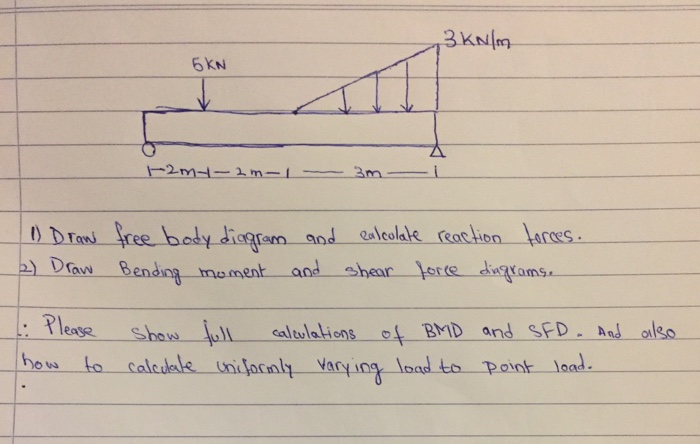 3 KN/m
5KN
2m 2m 3m
1) Draw free body diagram and calculate reaction forces.
2) Draw Bending moment and shear force diagrams.
∴ Please show full calculations of BMD and SFD. And also
how to calculate uniformly varying load to point load.